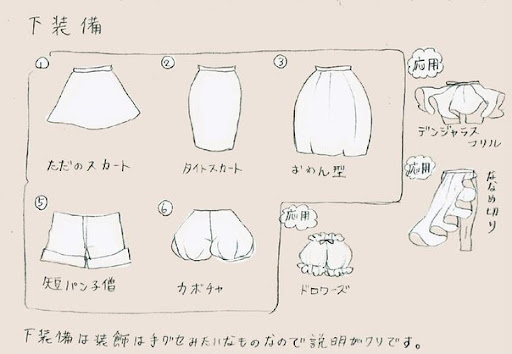 下装備
①
ただのスカート
②
タイトスカート
③
おわん型
応用
デンジャラス
フリル
応用
ななめ切り
⑤
短パン子僧
⑥
カボチャ
応用
ドロワーズ
下装備は装飾は手グセみたいなものなので説明がムリです。